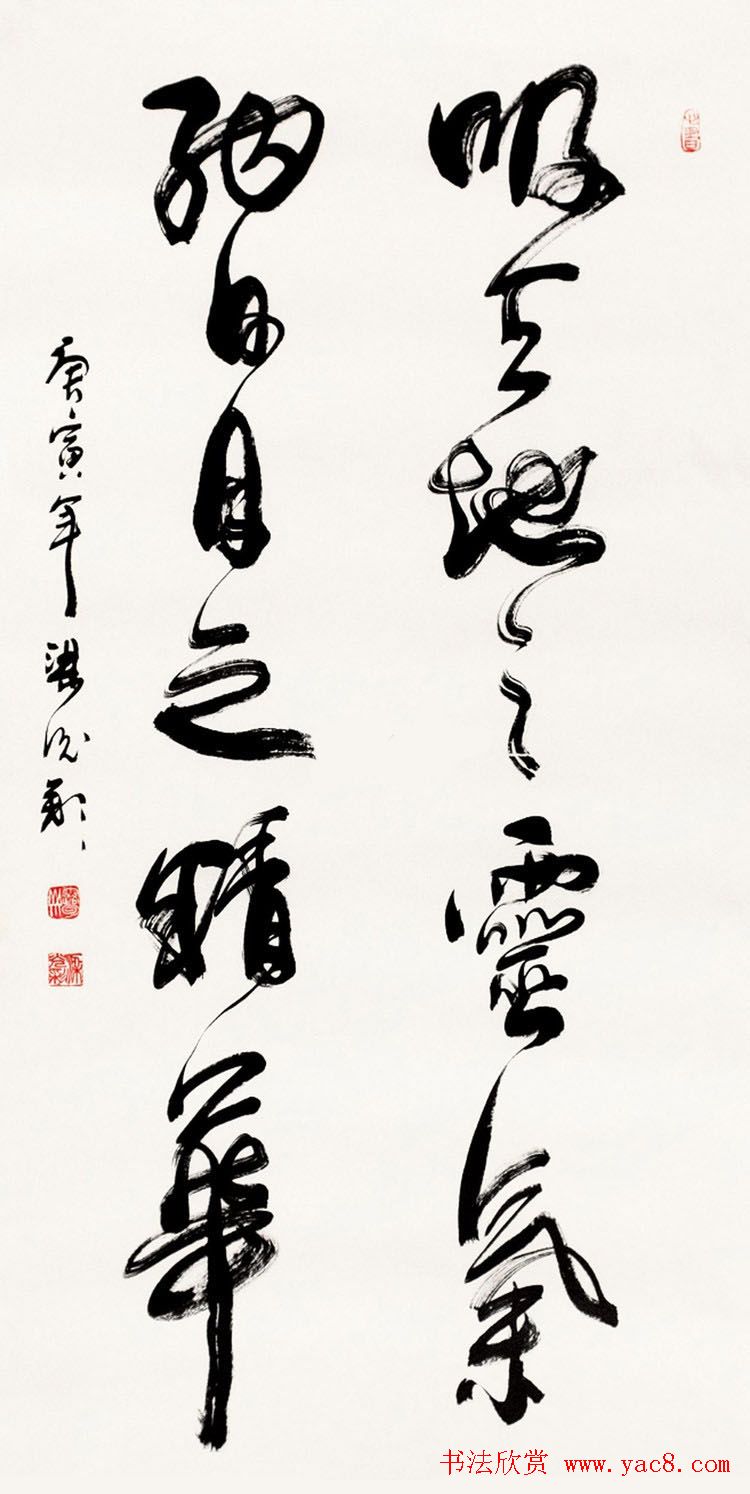 吸天地之靈氣
納日月之精華
庚寅年
书法欣赏 www.yac8.com